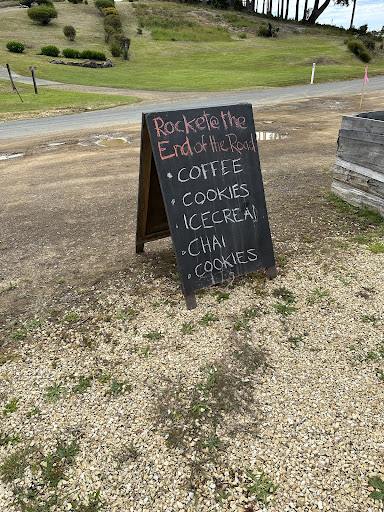 Rocket@the
End of the Road
• COFFEE
• COOKIES
• ICECREAM
• CHAI
• COOKIES